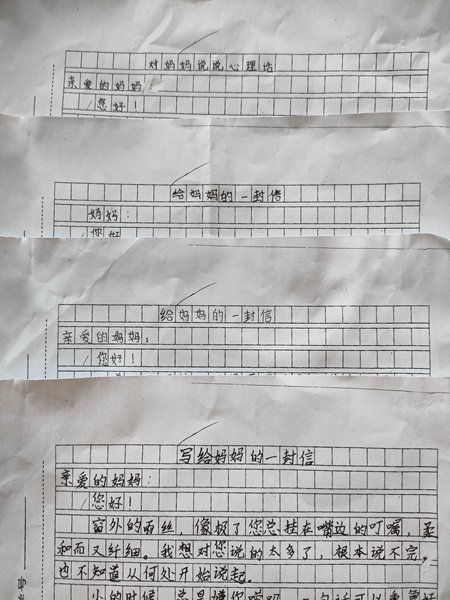 对妈妈说说心理话
亲爱的妈妈：
您好！
给妈妈的一封信
妈妈：
你好
给妈妈的一封信
亲爱的妈妈：
您好！
写给妈妈的一封信
亲爱的妈妈：
您好！
窗外的雨丝，像极了您总挂在嘴边的叮嘱，柔
和而又纤细。我想对您说的太多了，根本说不完，
也不知道从何处开始说起。
小的时候，总是嫌你唠叨，一句话可以重复好